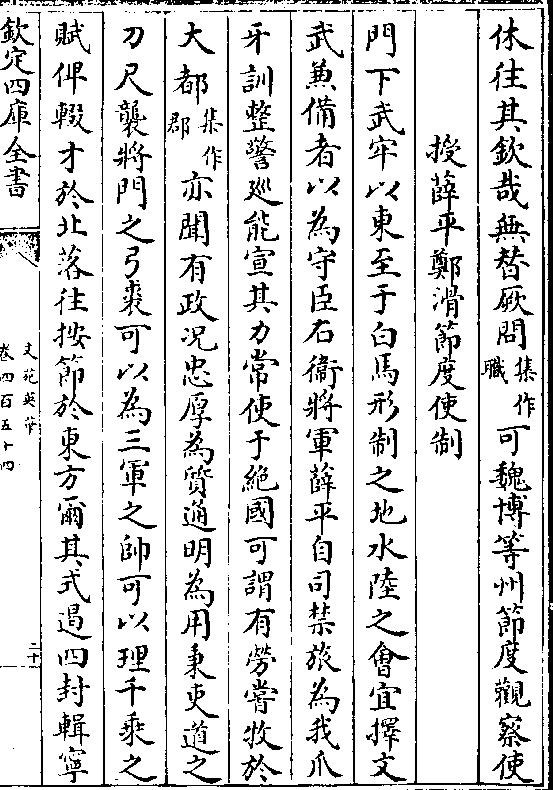 休往其欽哉無替厥問集作職可魏博等州節度觀察使
授薛平鄭滑節度使制
門下武牢以東至于白馬形制之地水陸之會宜擇文
武兼備者以為守臣右衛將軍薛平自司禁旅為我爪
牙訓整警廵能宣其力常使于絶國可謂有勞嘗牧於
大都集作郡亦聞有政况忠厚為質通明為用秉吏道之
刀尺襲將門之弓裘可以為三軍之帥可以理千乘之
賦俾輟才於北落往按節於東方爾其式遏四封輯寧
欽定四庫全書
文苑英華
卷四百五十四
二十